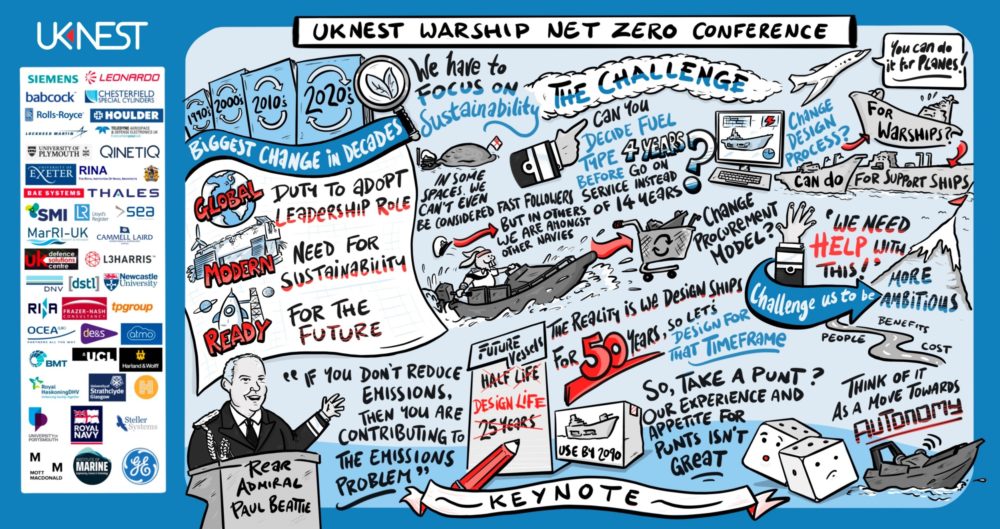 UKNEST
SIEMENS
LEONARDO
babcock
CHESTERFIELD
SPECIAL CYLINDERS
Rolls-Royce
HOULDER
LOCKHEED MARTIN
TELEDYNE
UNIVERSITY OF
PLYMOUTH
QINETIQ
EXETER
RINA
BAE SYSTEMS
THALES
SMI
Lloyd's
Register
>sea
MarRI-UK
CAMMELL LAIRD
uk defence
solutions
centre
L3HARRIS
DNV
[dstl]
Newcastle
University
RINA
FRAZER-NASH
CONSULTANCY
tpgroup
OCEA
de&s
atmo
BMT
UCL
Harland & Wolff
Royal
HaskoningDHV
University of
Strathclyde
Glasgow
UNIVERSITY OF
PORTSMOUTH
ROYAL
NAVY
Steller
Systems
M M
MOTT
MACDONALD
MARINE
UKNEST WARSHIP NET ZERO CONFERENCE
1990's
2000's
2010's
2020's
BIGGEST CHANGE IN DECADES
GLOBAL
DUTY TO ADOPT
LEADERSHIP ROLE
MODERN
NEED FOR
SUSTAINABILITY
READY
FOR THE
FUTURE
We have to
FOCUS ON
Sustainability
THE CHALLENGE
IN SOME
SPACES WE
CAN'T EVEN
BE CONSIDERED
CAN YOU
DECIDE FUEL
TYPE 4 YEARS
BEFORE GO ON
SERVICE INSTEAD
OF 14 YEARS
?
FAST FOLLOWERS
BUT NO OTHERS
WE ARE AMONGST
OTHER NAVIES
CHANGE
DESIGN
PROCESS?
You can do
it for PLANES!
FOR
WARSHIPS?
CAN do FOR SUPPORT SHIPS
CHANGE
PROCUREMENT
MODEL?
"WE NEED
HELP WITH
THIS!"
Challenge us to be
MORE
AMBITIOUS
BENEFITS
PEOPLE
COST
THE REALITY IS WE DESIGN SHIPS
FOR 50 YEARS, SO LETS
DESIGN FOR
THAT TIMEFRAME
FUTURE
Vessels
HALF LIFE
DESIGN LIFE
25 YEARS
USE BY 2090
SO, TAKE A PUNT?
OUR EXPERIENCE AND
APPETITE FOR
PUNTS ISN'T
GREAT
THINK OF IT
AS A MOVE TOWARDS
AUTONOMY
"IF YOU DON'T REDUCE
EMISSIONS,
THEN YOU ARE
CONTRIBUTING TO
THE EMISSIONS
PROBLEM"
REAR
ADMIRAL
PAUL BEATTIE
KEYNOTE